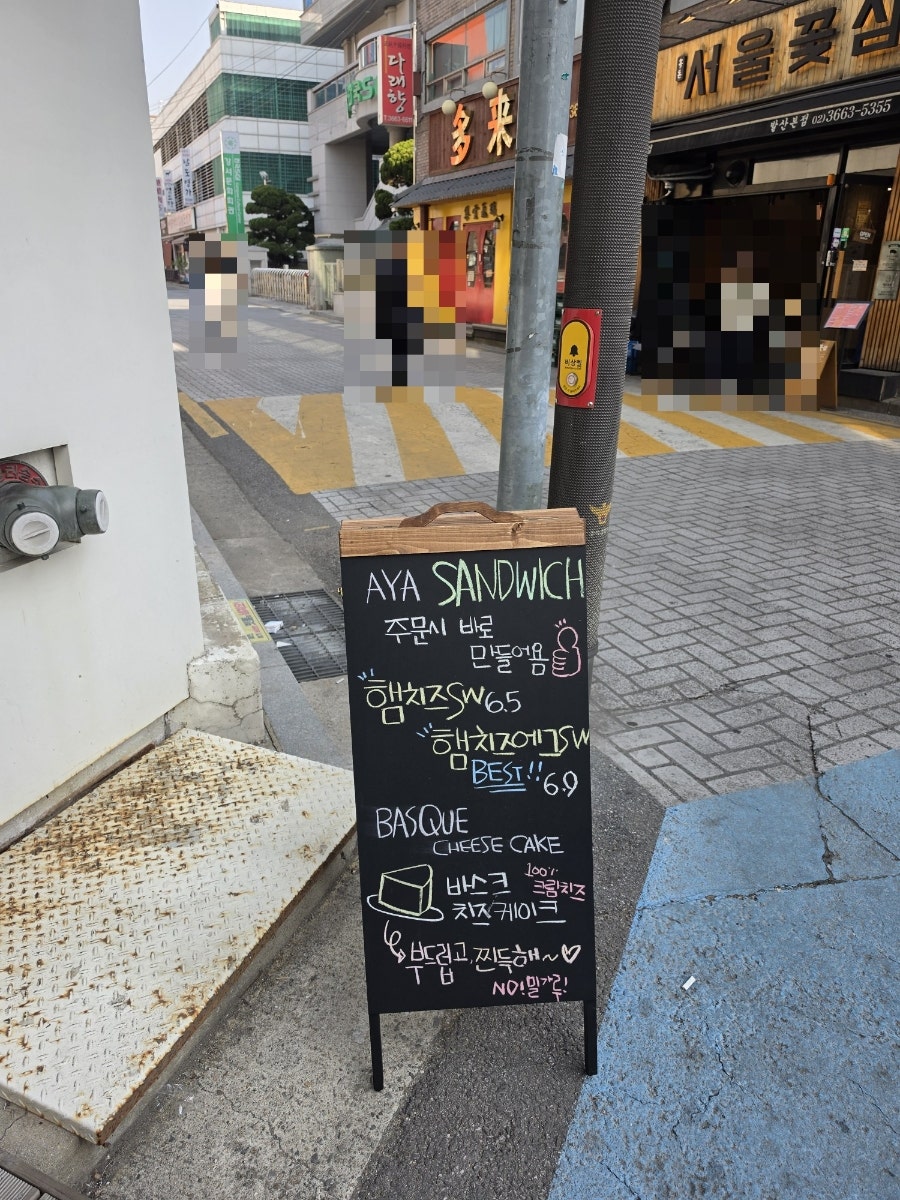 다래향
T.3663-6611
多来
서울꽃삼
발산본점 02)3663-5355
강서문화회관
비상벨
AYA SANDWICH
주문시 바로
만들어옴
햄치즈SW 6.5
햄치즈에그SW
BEST!! 6.9
BASQUE
CHEESE CAKE
바스크
치즈케이크
100%
크림치즈
부드럽고, 찐득해~♡
NO! 밀가루!